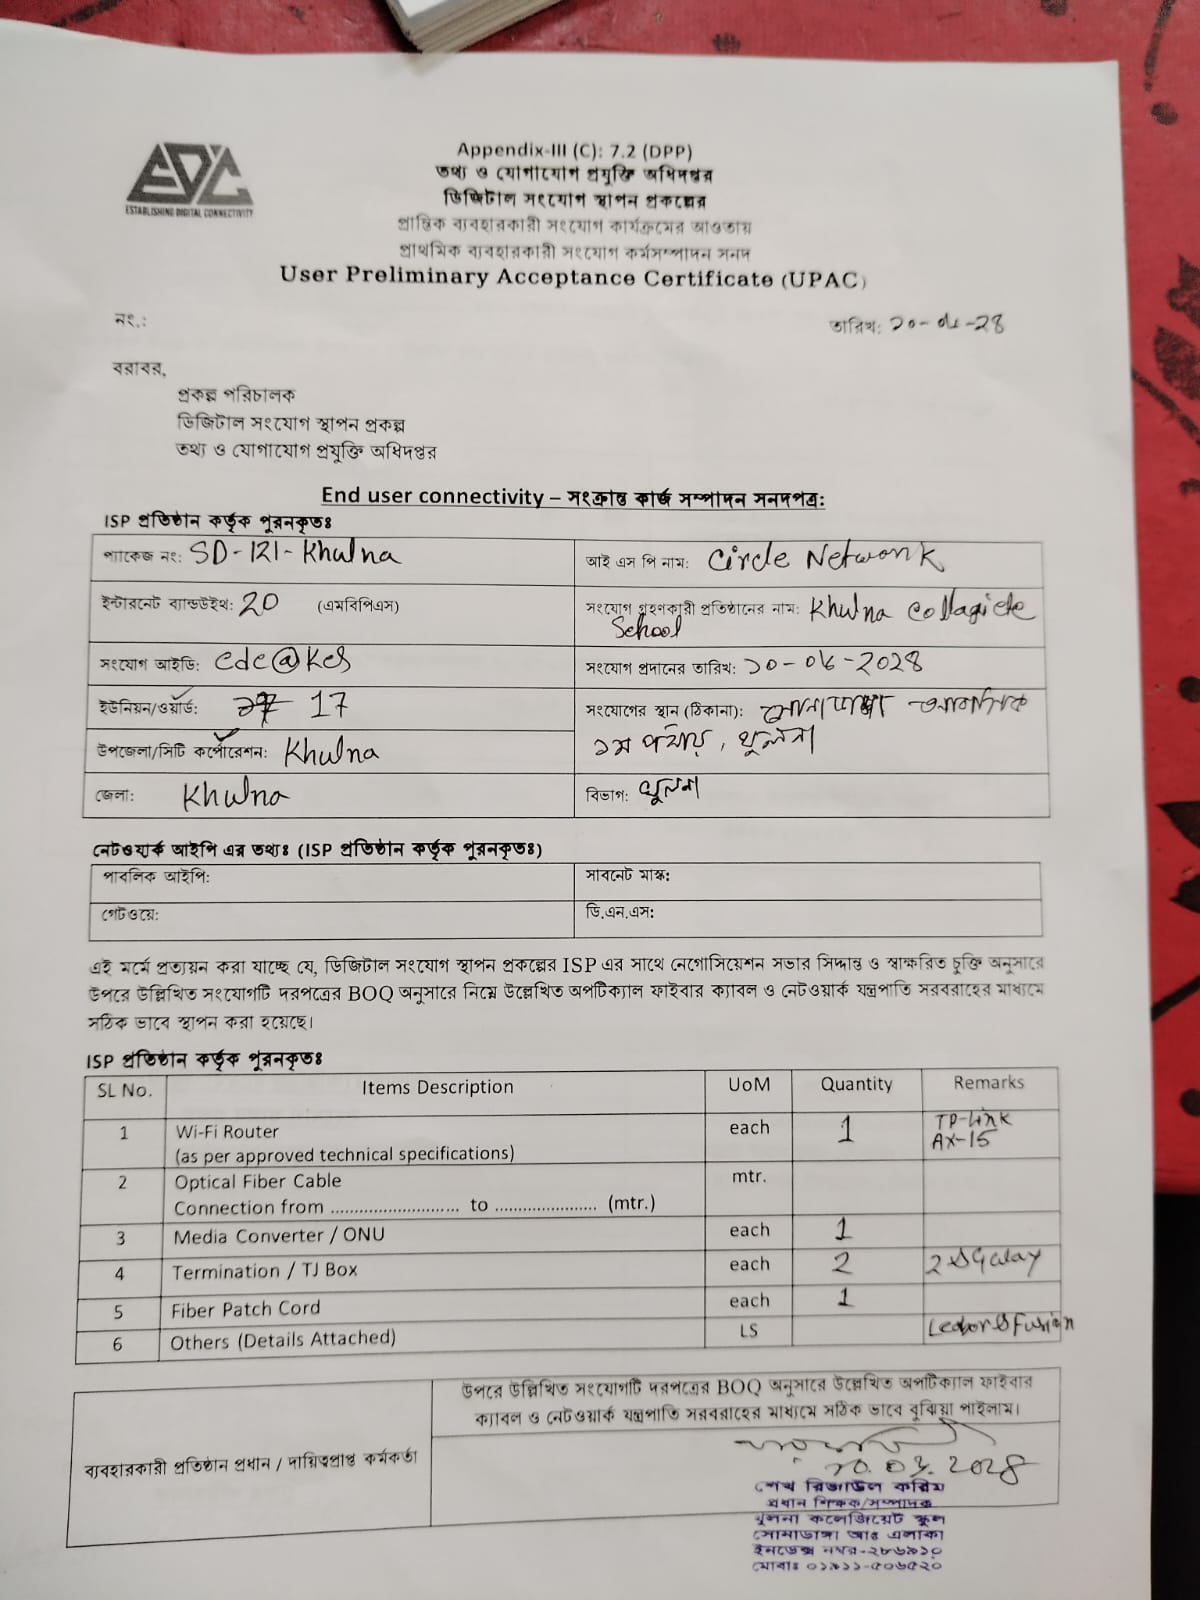 EDC
ESTABLISHING DIGITAL CONNECTIVITY
Appendix-III (C): 7.2 (DPP)
তথ্য ও যোগাযোগ প্রযুক্তি অধিদপ্তর
ডিজিটাল সংযোগ স্থাপন প্রকল্পের
প্রান্তিক ব্যবহারকারী সংযোগ কার্যক্রমের আওতায়
প্রাথমিক ব্যবহারকারী সংযোগ কর্মসম্পাদন সনদ
User Preliminary Acceptance Certificate (UPAC)
নং.:
তারিখ: ১০-০৬-২৪
বরাবর,
প্রকল্প পরিচালক
ডিজিটাল সংযোগ স্থাপন প্রকল্প
তথ্য ও যোগাযোগ প্রযুক্তি অধিদপ্তর
End user connectivity – সংক্রান্ত কার্জ সম্পাদন সনদপত্র:
ISP প্রতিষ্ঠান কর্তৃক পুরনকৃতঃ
প্যাকেজ নং: SD-121-Khulna
আই এস পি নাম: Circle Network
ইন্টারনেট ব্যান্ডউইথ: 20 (এমবিপিএস)
সংযোগ গ্রহণকারী প্রতিষ্ঠানের নাম: Khulna Collagiete
School
সংযোগ আইডি: edc@kcs
সংযোগ প্রদানের তারিখ: ১০-০৬-২০২৪
ইউনিয়ন/ওয়ার্ড: 17
সংযোগের স্থান (ঠিকানা): সোনাডাঙ্গা আবাসিক
১ম পর্যায়, খুলনা
উপজেলা/সিটি কর্পোরেশন: Khulna
জেলা: Khulna
বিভাগ: খুলনা
নেটওয়ার্ক আইপি এর তথ্যঃ (ISP প্রতিষ্ঠান কর্তৃক পুরনকৃতঃ)
পাবলিক আইপি:
সাবনেট মাস্ক:
গেটওয়ে:
ডি.এন.এস:
এই মর্মে প্রত্যয়ন করা যাচ্ছে যে, ডিজিটাল সংযোগ স্থাপন প্রকল্পের ISP এর সাথে নেগোসিয়েশন সভার সিদ্দান্ত ও স্বাক্ষরিত চুক্তি অনুসারে
উপরে উল্লিখিত সংযোগটি দরপত্রের BOQ অনুসারে নিম্নে উল্লেখিত অপটিক্যাল ফাইবার ক্যাবল ও নেটওয়ার্ক যন্ত্রপাতি সরবরাহের মাধ্যমে
সঠিক ভাবে স্থাপন করা হয়েছে।
ISP প্রতিষ্ঠান কর্তৃক পুরনকৃতঃ
SL No. Items Description UoM Quantity Remarks
1 Wi-Fi Router each 1 TP-Link
(as per approved technical specifications) AX-15
2 Optical Fiber Cable mtr.
Connection from ........................... to ...................... (mtr.)
3 Media Converter / ONU each 1
4 Termination / TJ Box each 2
5 Fiber Patch Cord each 1
6 Others (Details Attached) LS
উপরে উল্লিখিত সংযোগটি দরপত্রের BOQ অনুসারে উল্লেখিত অপটিক্যাল ফাইবার
ক্যাবল ও নেটওয়ার্ক যন্ত্রপাতি সরবরাহের মাধ্যমে সঠিক ভাবে বুঝিয়া পাইলাম।
ব্যবহারকারী প্রতিষ্ঠান প্রধান / দায়িত্বপ্রাপ্ত কর্মকর্তা
শেখ রিজাউল করিম
প্রধান শিক্ষক/সম্পাদক
খুলনা কলেজিয়েট স্কুল
সোনাডাঙ্গা আঃ এলাকা